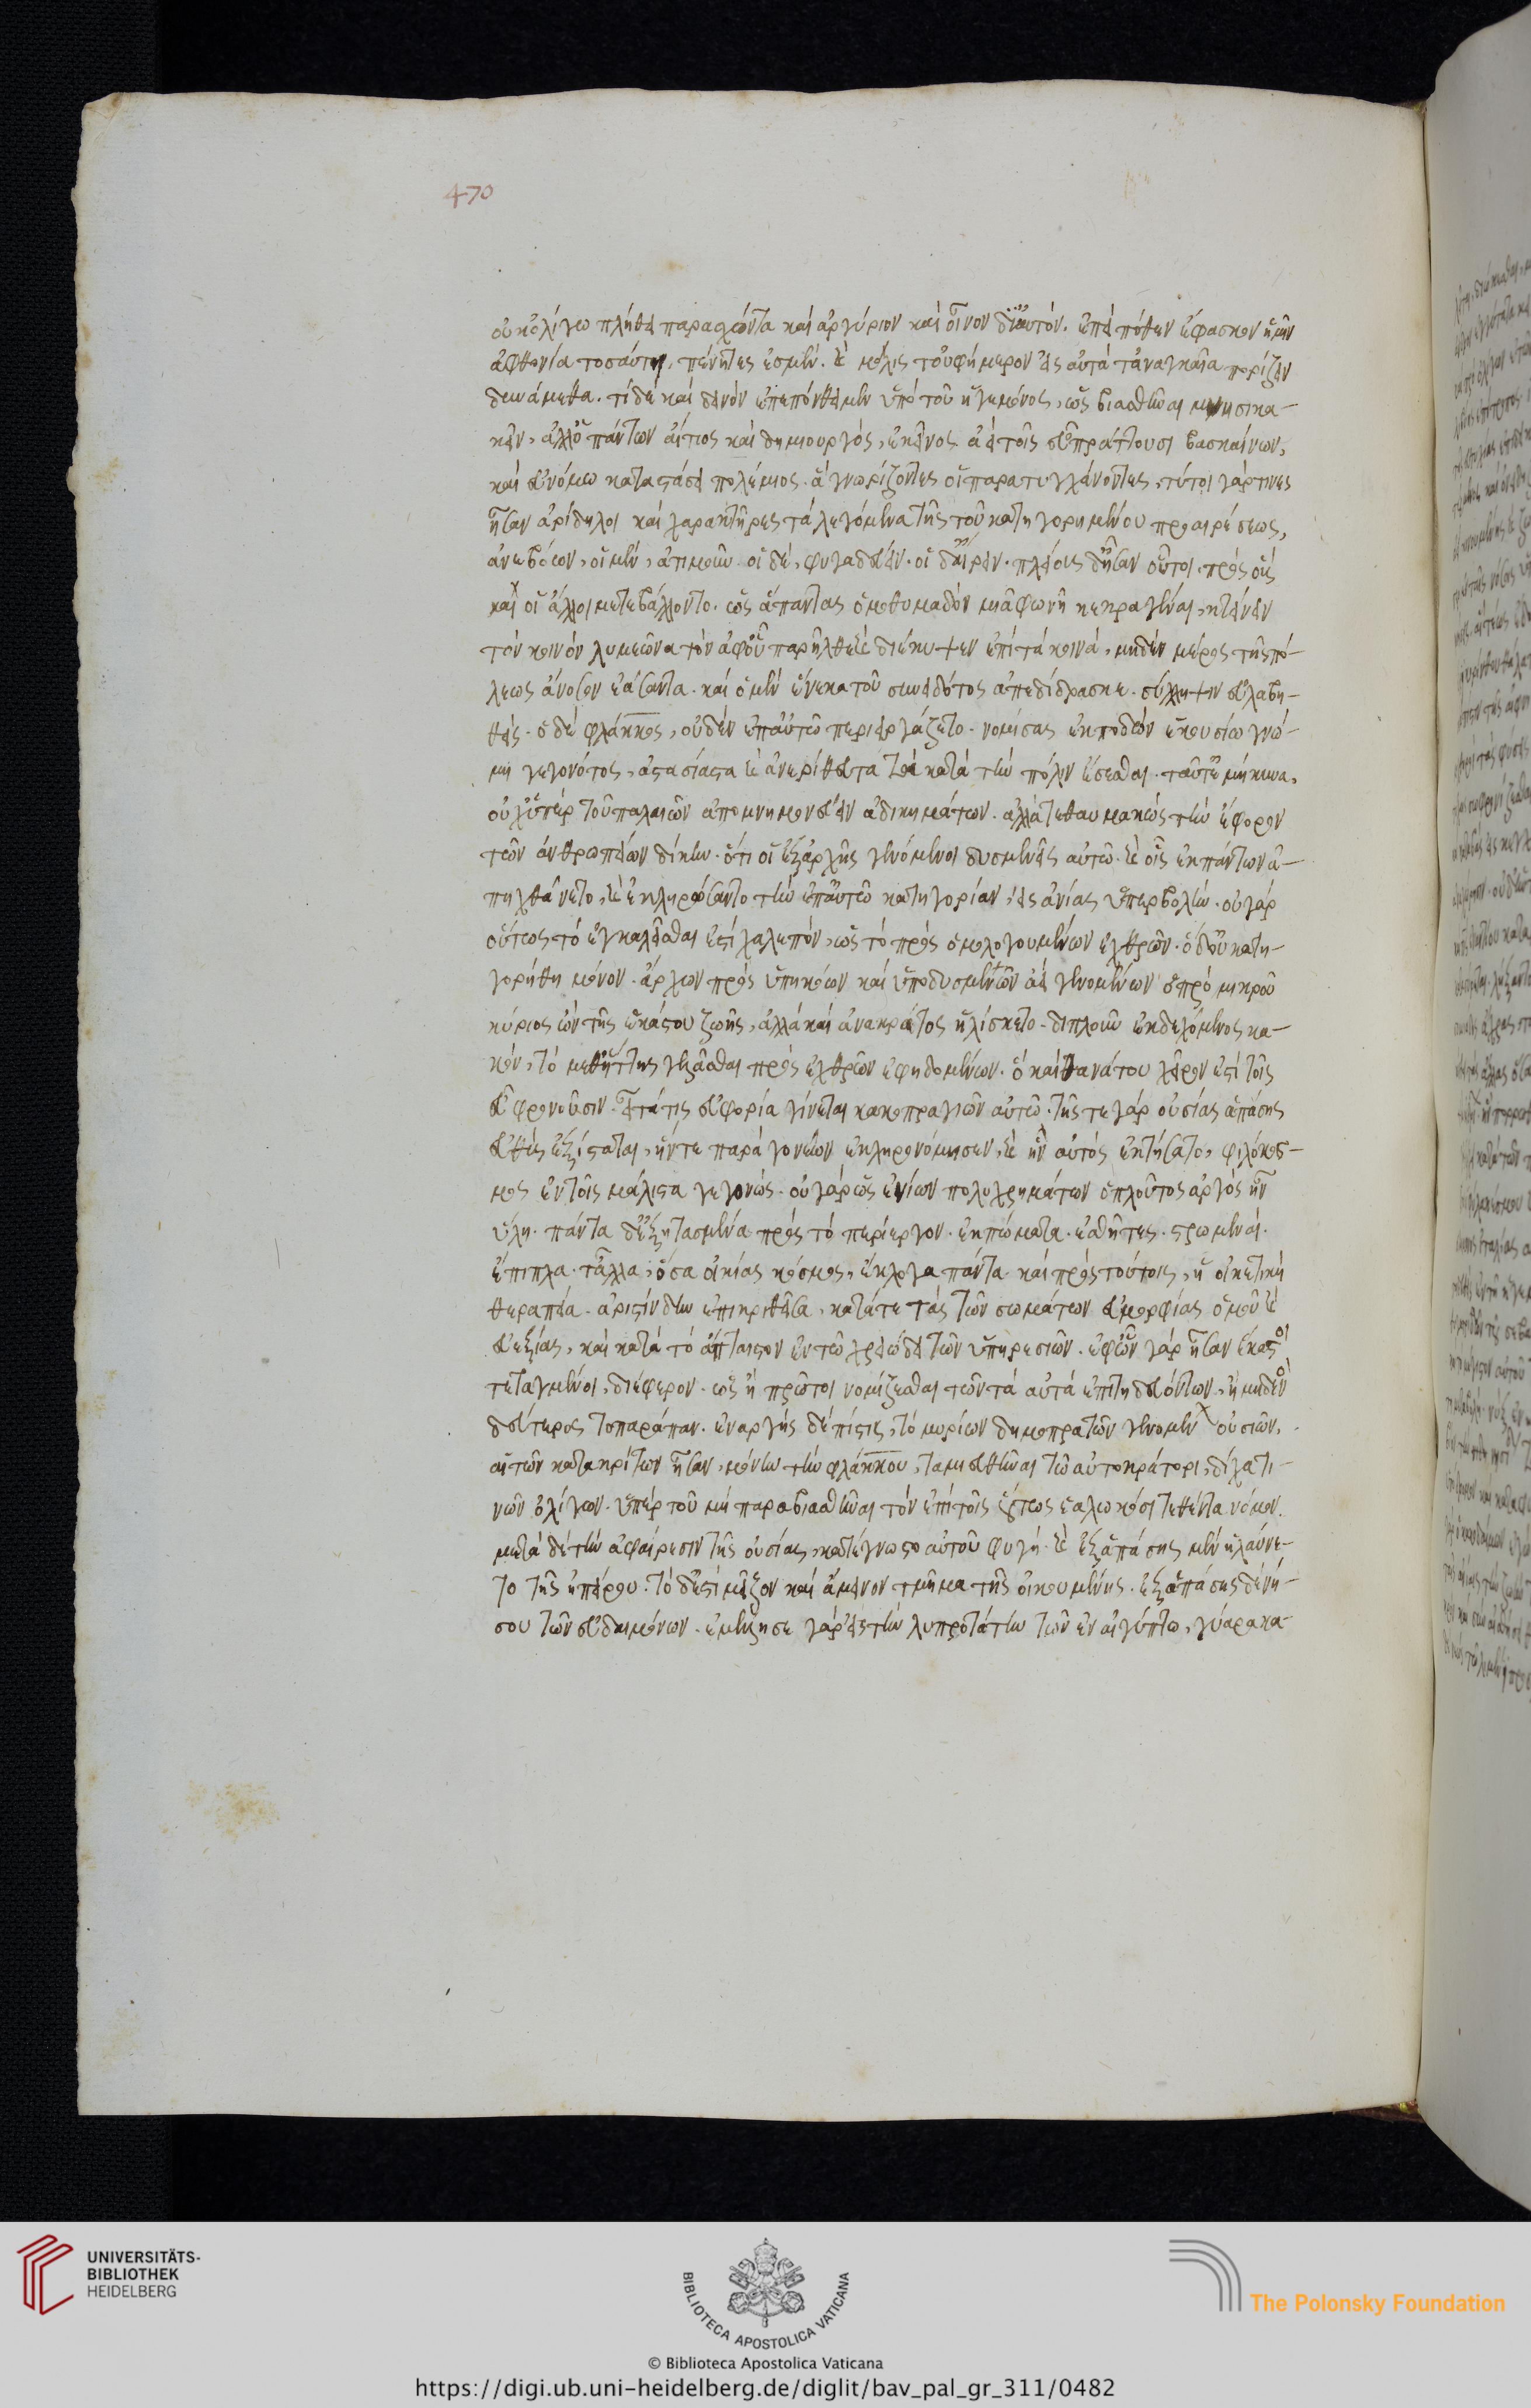 470
οὐκ ὀλίγω πλήθει παρασχόντα καὶ ἀργύριον καὶ οἶνον δι' αὐτόν. ἐπεὶ πόθεν ἔφασκον ἡμῖν
ἀφθονία τοσαύτη, πένητες ἐσμέν. καὶ μόλις τοὐφήμερον εἰς αὐτὰ τἀναγκαῖα πορίζειν
δυνάμεθα. τί δὲ καὶ δεινὸν ἐπεπόνθειμεν ὑπὸ τοῦ ἡγεμόνος, ὡς βιασθῆναι μνησικα-
κεῖν, ἀλλ' ὁ πάντων αἴτιος καὶ δημιουργός, ἐκεῖνος ἀεὶ τοῖς εὖ πράττουσι βασκαίνων,
καὶ εὐνόμω καταστάσει πολέμιος. ἃ γνωρίζοντες οἱ παρατυγχάνοντες, τούτοι γάρ τινες
ἦσαν ἀρίδηλοι καὶ χαρακτῆρες τὰ λεγόμενα τῆς τοῦ κατηγορημένου προαιρέσεως,
ἀνεβόων, οἱ μὲν, ἀτιμοῦν. οἱ δὲ, φυγαδεύειν. οἱ δ' αἴρειν. πλείους δ' ἦσαν οὗτοι, πρὸς οὓς
καὶ οἱ ἄλλοι μετεβάλλοντο. ὡς ἅπαντας ὁμοθυμαδὸν μιᾶ φωνῆ κεκραγέναι, κτείνειν
τὸν κοινὸν λυμεῶνα τὸν ἀφ' οὗ παρῆλθε καὶ διέκυψεν ἐπὶ τὰ κοινά, μηδὲν μέρος τῆς πό-
λεως ἄνοσον ἐάσαντα. καὶ ὁ μὲν ἕνεκα τοῦ συνειδότος ἀπεδίδρασκε. σύλληψιν εὐλαβη-
θείς. ὁ δὲ φλάκκος, οὐδὲν ἐπ' αὐτῶ περιειργάζετο. νομίσας ἐκποδὼν ἑκουσίω γνώ-
μη γεγονότος, ἀστασίαστα καὶ ἀνερίθευτα τὰ κατὰ τὴν πόλιν ἔσεσθαι. ταῦτ' ἐμήκυνα,
οὐχ ὑπὲρ τοῦ παλαιῶν ἀπομνημονεύειν ἀδικημάτων. ἀλλὰ τεθαυμακὼς τὴν ἔφορον
τῶν ἀνθρωπείων δίκην. ὅτι οἱ ἐξ ἀρχῆς γενόμενοι δυσμενεῖς αὐτῶ. καὶ οἷς ἐκ πάντων ἀ-
πηχθάνετο, καὶ ἐκληρώσαντο τὴν ἐπ' αὐτῶ κατηγορίαν, εἰς ἀνίας ὑπερβολήν. οὐ γὰρ
οὕτως τὸ ἐγκαλεῖσθαι ἐστὶ χαλεπόν, ὡς τὸ πρὸς ὁμολογουμένων ἐχθρῶν. ὁ δ' οὐ κατη-
γορήθη μόνον. ἄρχων πρὸς ὑπηκόων καὶ ὑπὸ δυσμενῶν ἀεὶ γενομένων ὁ πρὸ μικροῦ
κύριος ὢν τῆς ἑκάστου ζωῆς, ἀλλὰ καὶ ἀνακράτος ἡλίσκετο. διπλοῦν ἐκδεχόμενος κα-
κόν, τὸ μεθ' ἥττης γελᾶσθαι πρὸς ἐχθρῶν ἐφηδομένων. ὃ καὶ θανάτου χεῖρον ἐστὶ τοῖς
εὖ φρονοῦσιν. εἶτά τις εὐφορία γίνεται κακοπραγιῶν αὐτῶ. τῆς τε γὰρ οὐσίας ἁπάσης
εὐθὺς ἐξίσταται, ἥν τε παρὰ γονέων ἐκληρονόμησεν, καὶ ἣν αὐτὸς ἐκτήσατο, φιλόκοσ-
μος ἐν τοῖς μάλιστα γεγονώς. οὐ γὰρ ὡς ἐνίων πολυχρημάτων ὁ πλοῦτος ἀργὸς ἦν
ὕλη. πάντα δ' ἐξητασμένα πρὸς τὸ περίεργον. ἐκπώματα. ἐσθῆτες. στρωμναί.
ἔπιπλα. τἆλλα, ὅσα οἰκίας κόσμος, ἔκλογα πάντα. καὶ πρὸς τούτοις, ἡ οἰκετικὴ
θεραπεία. ἀριστίνδην ἐπικριθεῖσα, κατά τε τὰς τῶν σωμάτων εὐμορφίας ὁμοῦ καὶ
εὐεξίας, καὶ κατὰ τὸ ἄπταιστον ἐν τῶ χρειώδει τῶν ὑπηρεσιῶν. ἐφ' ὧν γὰρ ἦσαν ἕκαστοι
τεταγμένοι, διέφερον. ὡς ἢ πρῶτοι νομίζεσθαι τῶν τὰ αὐτὰ ἐπιτηδευόντων, ἢ μηδενὸς
δεύτερος τοπαράπαν. ἐναργὴς δὲ πίστις, τὸ μυρίων δημοπρατῶν γενομένων οὐσιῶν,
αἳ τῶν κατακρίτων ἦσαν, μόνην τὴν φλάκκου, ταμιευθῆναι τῶ αὐτοκράτορι, δίχα τι-
νῶν ὀλίγων. ὑπὲρ τοῦ μὴ παραβιασθῆναι τὸν ἐπὶ τοῖς οὕτως ἑαλωκόσι τεθέντα νόμον.
μετὰ δὲ τὴν ἀφαίρεσιν τῆς οὐσίας, κατέγνωστο αὐτοῦ φυγή. καὶ ἐξ ἁπάσης μὲν ἠλαύνε-
το τῆς ἠπείρου. τὸ δ' ἐστὶ μεῖζον καὶ ἄμεινον τμῆμα τῆς οἰκουμένης. ἐξ ἁπάσης δὲ νή-
σου τῶν εὐδαιμόνων. ἐμέλλησε γὰρ εἰς τὴν λυπροτάτην τῶν ἐν αἰγύπτω, γύαρα κα-
UNIVERSITÄTS-
BIBLIOTHEK
HEIDELBERG
BIBLIOTECA APOSTOLICA VATICANA
The Polonsky Foundation
© Biblioteca Apostolica Vaticana
https://digi.ub.uni-heidelberg.de/diglit/bav_pal_gr_311/0482